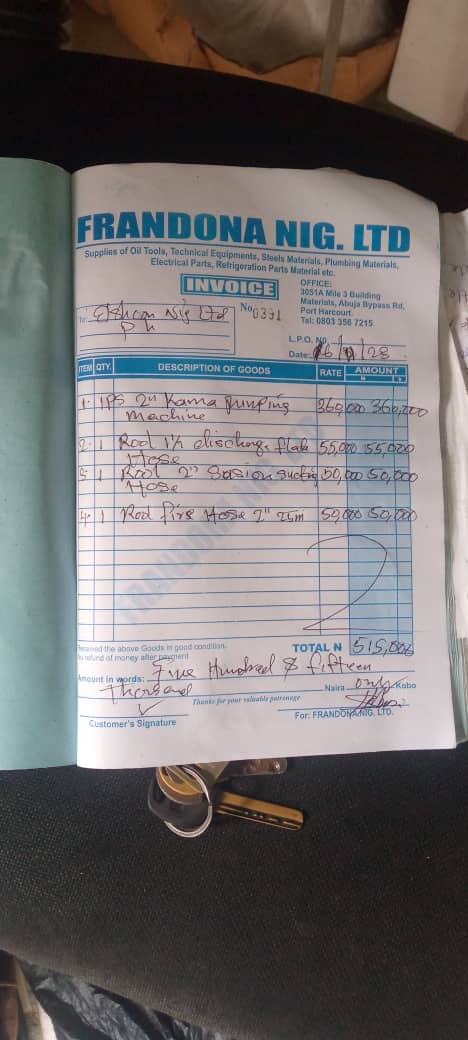 FRANDONA NIG. LTD
Supplies of Oil Tools, Technical Equipments, Steels Materials, Plumbing Materials,
Electrical Parts, Refrigeration Parts Material etc.
INVOICE
OFFICE:
3051A Mile 3 Building
Materials, Abuja Bypass Rd,
Port Harcourt.
Tel: 0803 356 7215
To: Nig Ltd
P h
No 0391
L.P.O. NO.
Date:
ITEM QTY. DESCRIPTION OF GOODS RATE AMOUNT
N K
1. 1PS 2" Kama Pumping 360,000 360,000
machine
2. 1 Rod 1½ discharge 55,000 55,000
Hose
3. 1 Rod 2" 50,000 50,000
Hose
4. 1 Rod fire Hose 2" 25m 50,000 50,000
FRANDONA NIG. LTD
Received the above Goods in good condition.
No refund of money after payment
TOTAL N 515,000
Amount in words: Five Hundred & fifteen
Thousand Naira only Kobo
Thanks for your valuable patronage
Customer's Signature
For: FRANDONA NIG. LTD.